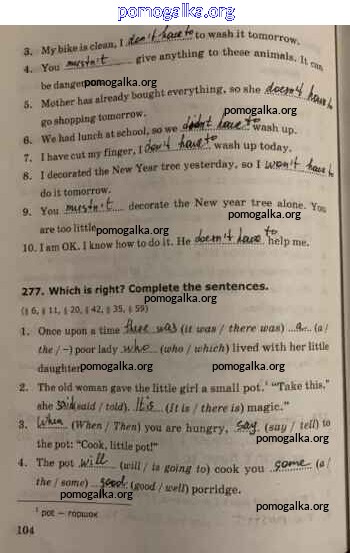 pomogalka.org pomogalka.org
3. My bike is clean, I don't have to to wash it tomorrow.
4. You mustn't give anything to these animals. It can
be danger pomogalka.org pomogalka.org
5. Mother has already bought everything, so she doesn't have to
go shopping tomorrow.
pomogalka.org
6. We had lunch at school, so we didn't have to wash up.
7. I have cut my finger, I don't have to wash up today.
pomogalka.org
8. I decorated the New Year tree yesterday, so I won't have to
do it tomorrow.
pomogalka.org
9. You mustn't decorate the New year tree alone. You
are too little pomogalka.org pomogalka.org
10. I am OK. I know how to do it. He doesn't have to help me.
pomogalka.org
277. Which is right? Complete the sentences.
(§ 6, § 11, § 20, § 42, § 35, § 59) pomogalka.org
1. Once upon a time there was (it was / there was) a (a /
the / –) poor lady who (who / which) lived with her little
daughter pomogalka.org pomogalka.org
2. The old woman gave the little girl a small pot.¹ "Take this,"
she said (said / told). It is (It is / there is) magic."
pomogalka.org pomogalka.org
3. When (When / Then) you are hungry, say (say / tell) to
the pot: "Cook, little pot!" pomogalka.org
4. The pot will (will / is going to) cook you some (a /
pomogalka.org
the / some) good (good / well) porridge.
pomogalka.org pomogalka.org
¹ pot – горшок
104
pomogalka.org pomogalka.org